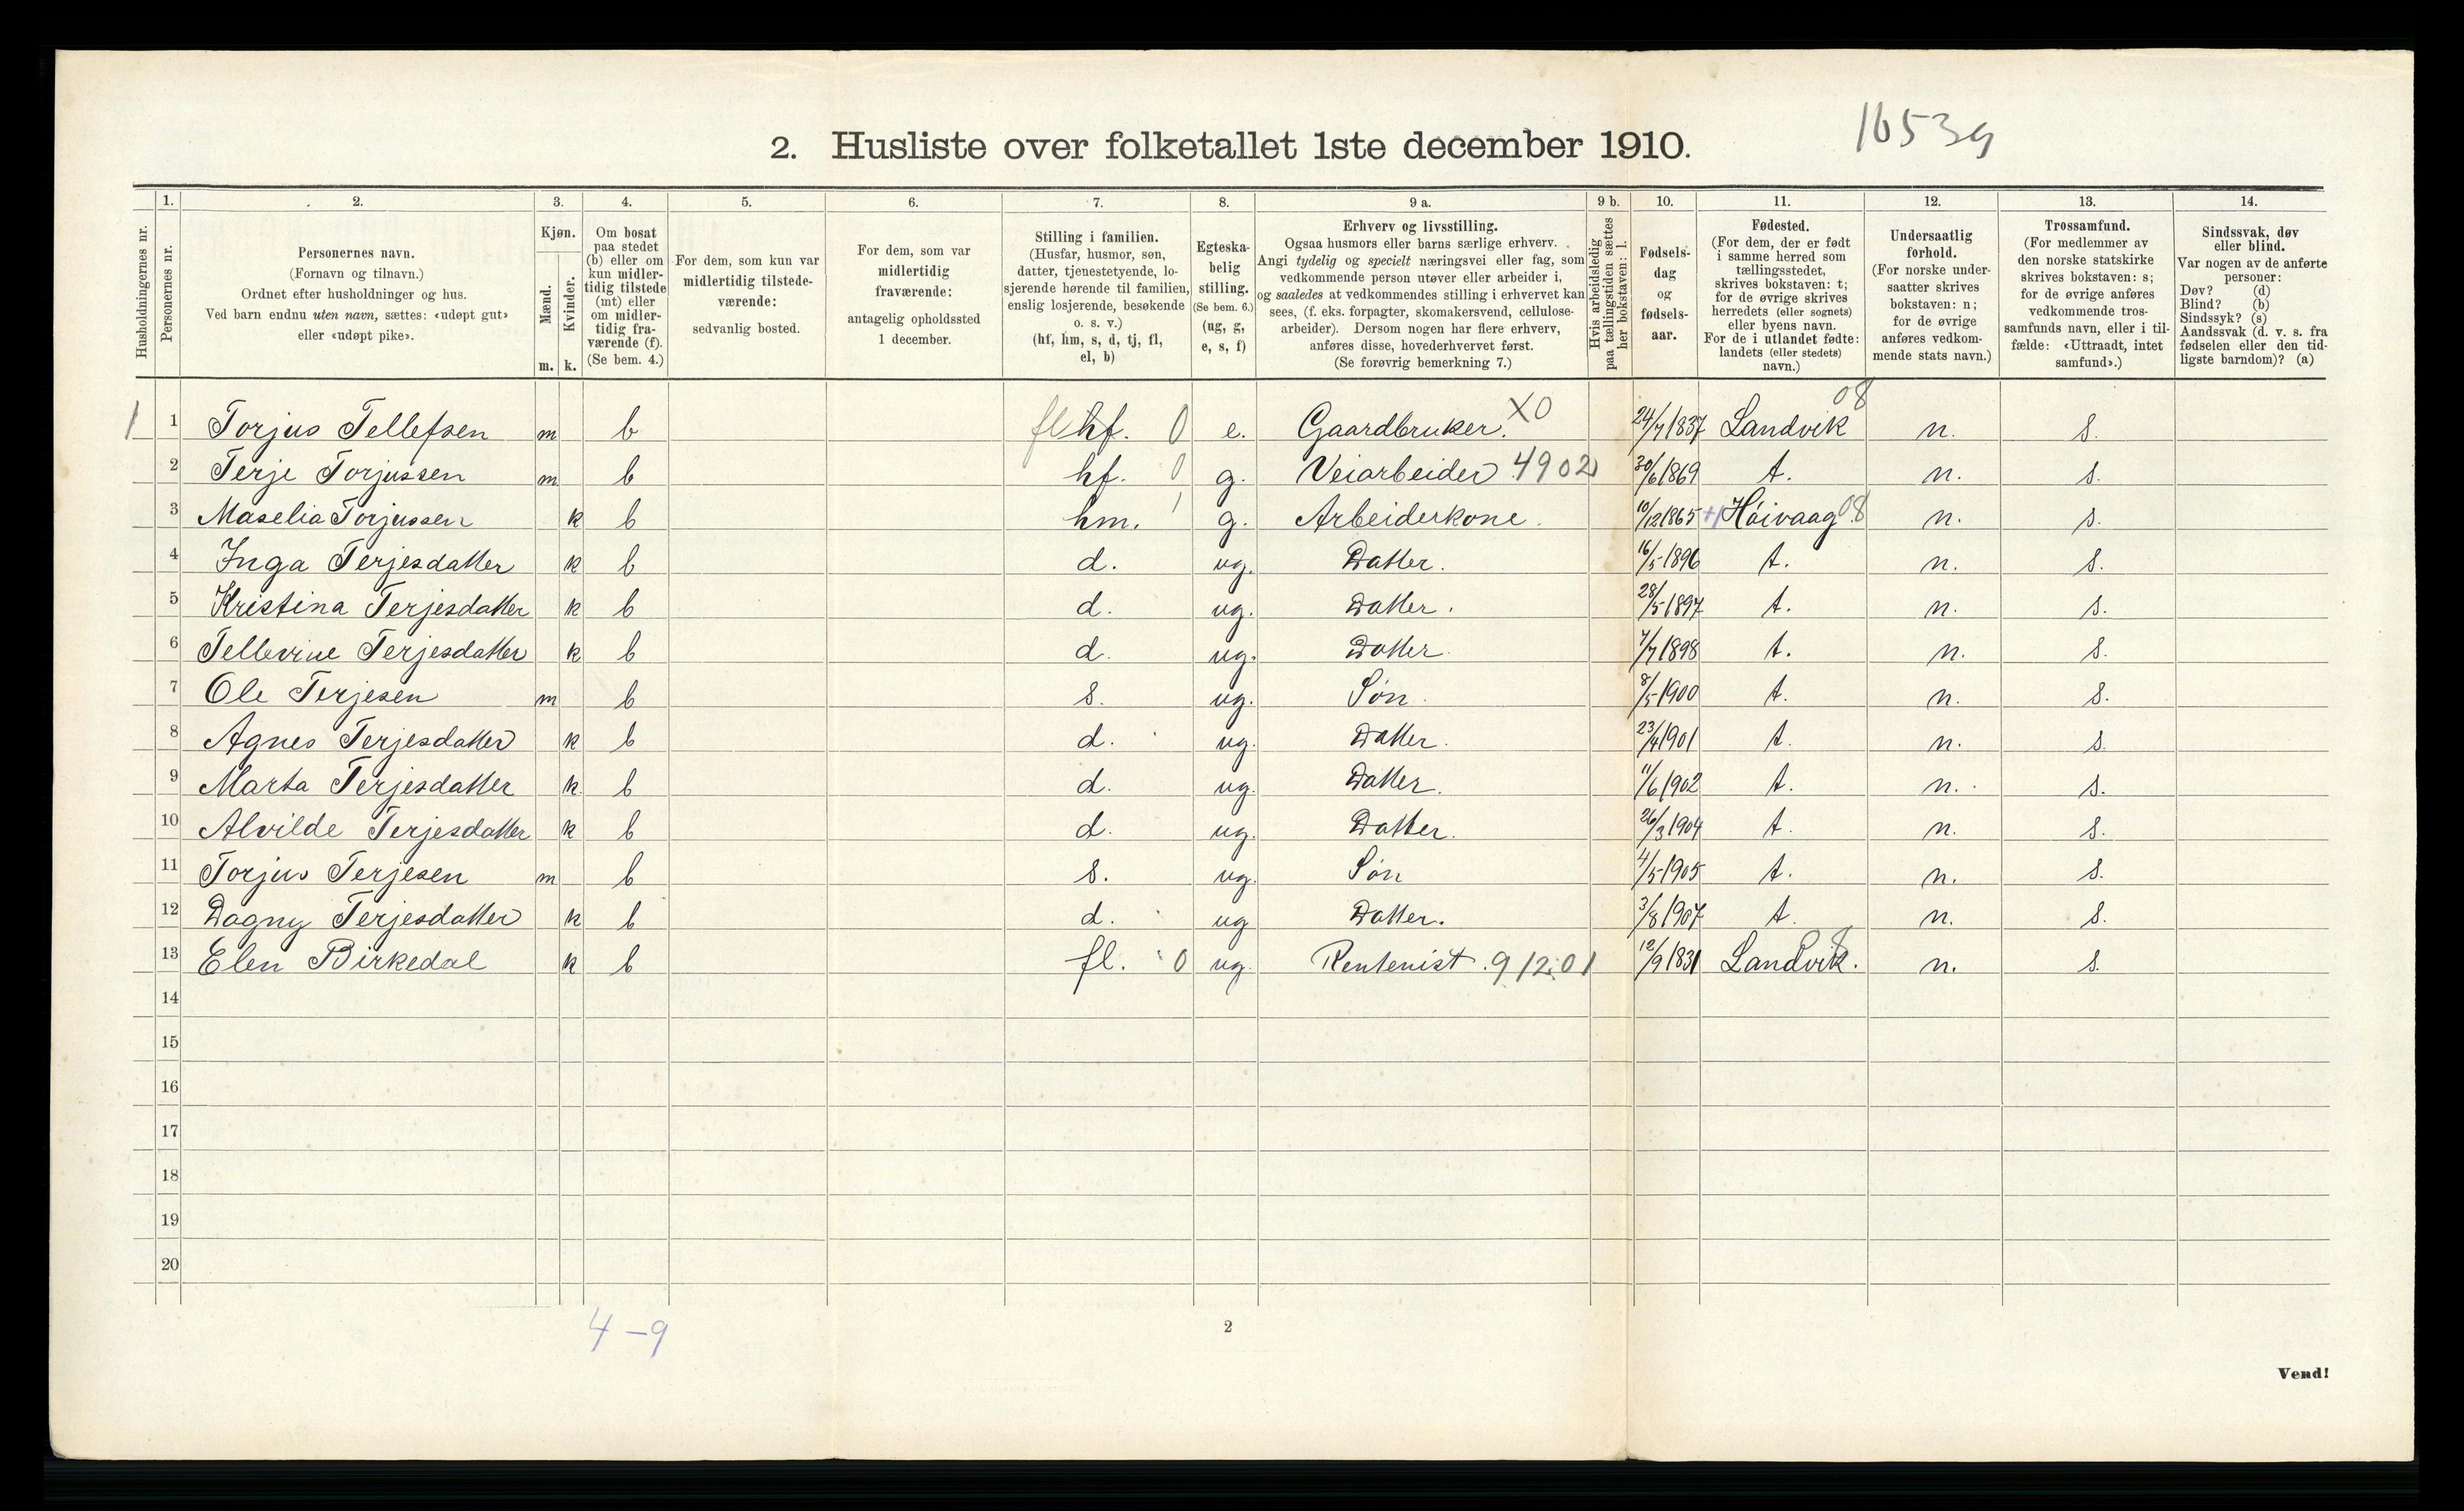 2. Husliste over folketallet 1ste december 1910.
1653g
Husholdningernes nr.
1. Personernes nr.
2. Personernes navn.
(Fornavn og tilnavn.)
Ordnet efter husholdninger og hus.
Ved barn endnu uten navn, sættes: «udøpt gut»
eller «udøpt pike».
3. Kjøn.
Mænd. Kvinder.
m. k.
4. Om bosat
paa stedet
(b) eller om
kun midler-
tidig tilstede
(mt) eller
om midler-
tidig fra-
værende (f).
(Se bem. 4.)
5. For dem, som kun var
midlertidig tilstede-
værende:
sedvanlig bosted.
6. For dem, som var
midlertidig
fraværende:
antagelig opholdssted
1 december.
7. Stilling i familien.
(Husfar, husmor, søn,
datter, tjenestetyende, lo-
sjerende hørende til familien,
enslig losjerende, besøkende
o. s. v.)
(hf, hm, s, d, tj, fl,
el, b)
8. Egteska-
belig
stilling.
(Se bem. 6.)
(ug, g,
e, s, f)
9 a. Erhverv og livsstilling.
Ogsaa husmors eller barns særlige erhverv.
Angi tydelig og specielt næringsvei eller fag, som
vedkommende person utøver eller arbeider i,
og saaledes at vedkommendes stilling i erhvervet kan
sees, (f. eks. forpagter, skomakersvend, cellulose-
arbeider). Dersom nogen har flere erhverv,
anføres disse, hovederhvervet først.
(Se forøvrig bemerkning 7.)
9 b. Hvis arbeidsledig
paa tællingstiden sættes
her bokstaven: l.
10. Fødsels-
dag
og
fødsels-
aar.
11. Fødested.
(For dem, der er født
i samme herred som
tællingsstedet,
skrives bokstaven: t;
for de øvrige skrives
herredets (eller sognets)
eller byens navn.
For de i utlandet fødte:
landets (eller stedets)
navn.)
12. Undersaatlig
forhold.
(For norske under-
saatter skrives
bokstaven: n;
for de øvrige
anføres vedkom-
mende stats navn.)
13. Trossamfund.
(For medlemmer av
den norske statskirke
skrives bokstaven: s;
for de øvrige anføres
vedkommende tros-
samfunds navn, eller i til-
fælde: «Uttraadt, intet
samfund».)
14. Sindssvak, døv
eller blind.
Var nogen av de anførte
personer:
Døv? (d)
Blind? (b)
Sindssyk? (s)
Aandssvak (d. v. s. fra
fødselen eller den tid-
ligste barndom)? (a)
1 1 Torjus Tellefsen m b fl hf. 0 e. Gaardbruker. X0 24/7 1837 Landvik 08 n. s.
2 Terje Torjussen m b hf. 0 g. Veiarbeider 4902 30/6 1869 t. n. s.
3 Maselia Torjussen k b hm. 1 g. Arbeiderkone. 10/12 1865 Höivaag 08 n. s.
4 Inga Terjesdatter k b d. ug. Datter. 16/5 1896 t. n. s.
5 Kristina Terjesdatter k b d. ug. Datter. 28/5 1897 t. n. s.
6 Tellevine Terjesdatter k b d. ug. Datter. 7/7 1898 t. n. s.
7 Ole Terjesen m b s. ug. Søn. 8/5 1900 t. n. s.
8 Agnes Terjesdatter k b d. ug. Datter. 23/4 1901 t. n. s.
9 Marta Terjesdatter k b d. ug. Datter. 11/6 1902 t. n. s.
10 Alvilde Terjesdatter k b d. ug. Datter. 26/3 1904 t. n. s.
11 Torjus Terjesen m b s. ug. Søn 4/5 1905 t. n. s.
12 Dagny Terjesdatter k b d. ug Datter. 3/8 1907 t. n. s.
13 Elen Birkedal k b fl. 0 ug. Rentenist. 91201 12/9 1831 Landvik. 8 n. s.
14
15
16
17
18
19
20
4-9
2
Vend!